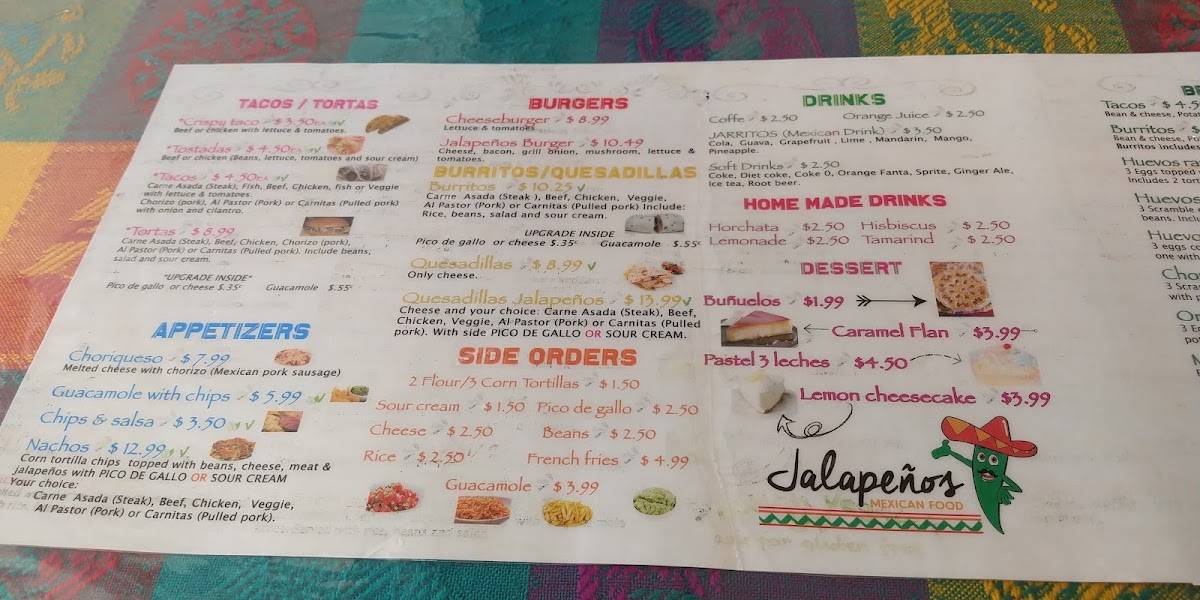 TACOS / TORTAS
*Crispy taco $ 3.50 EA
Beef or chicken with lettuce & tomatoes.
*Tostadas $ 4.50 EA
Beef or chicken (Beans, lettuce, tomatoes and sour cream)
*Tacos $ 4.50 EA
Carne Asada (Steak), Fish, Beef, Chicken, fish or Veggie
with lettuce & tomatoes.
Chorizo (pork), Al Pastor (Pork) or Carnitas (Pulled pork)
with onion and cilantro.
*Tortas $ 8.99
Carne Asada (Steak), Beef, Chicken, Chorizo (pork),
Al Pastor (Pork) or Carnitas (Pulled pork). Include beans,
salad and sour cream.
*UPGRADE INSIDE*
Pico de gallo or cheese $.35¢ Guacamole $.55¢
APPETIZERS
Choriqueso $ 7.99
Melted cheese with chorizo (Mexican pork sausage)
Guacamole with chips $ 5.99
Chips & salsa $ 3.50
Nachos $ 12.99
Corn tortilla chips topped with beans, cheese, meat &
jalapeños with PICO DE GALLO OR SOUR CREAM
Your choice:
Carne Asada (Steak), Beef, Chicken, Veggie,
Al Pastor (Pork) or Carnitas (Pulled pork).
BURGERS
Cheeseburger $ 8.99
Lettuce & tomatoes
Jalapeños Burger $ 10.49
Cheese, bacon, grill onion, mushroom, lettuce &
tomatoes.
BURRITOS/QUESADILLAS
Burritos $ 10.25
Carne Asada (Steak ), Beef, Chicken, Veggie,
Al Pastor (Pork) or Carnitas (Pulled pork) Include:
Rice, beans, salad and sour cream.
UPGRADE INSIDE
Pico de gallo or cheese $.35¢ Guacamole $.55¢
Quesadillas $ 8.99
Only cheese.
Quesadillas Jalapeños $ 13.99
Cheese and your choice: Carne Asada (Steak), Beef,
Chicken, Veggie, Al Pastor (Pork) or Carnitas (Pulled
pork). With side PICO DE GALLO OR SOUR CREAM.
SIDE ORDERS
2 Flour/3 Corn Tortillas $ 1.50
Sour cream $ 1.50 Pico de gallo $ 2.50
Cheese $ 2.50 Beans $ 2.50
Rice $ 2.50 French fries $ 4.99
Guacamole $ 3.99
DRINKS
Coffe $ 2.50 Orange Juice $ 2.50
JARRITOS (Mexican Drink) $ 3.50
Cola, Guava, Grapefruit , Lime , Mandarin, Mango,
Pineapple.
Soft Drinks $ 2.50
Coke, Diet coke, Coke 0, Orange Fanta, Sprite, Ginger Ale,
Ice tea, Root beer.
HOME MADE DRINKS
Horchata $2.50 Hisbiscus $ 2.50
Lemonade $2.50 Tamarind $ 2.50
DESSERT
Buñuelos $1.99
Caramel Flan $3.99
Pastel 3 leches $4.50
Lemon cheesecake $3.99
Jalapeños
MEXICAN FOOD
Tacos $ 4.5
Bean & cheese,
Burritos
Bean & cheese,
Burritos includes
Huevos
3 Eggs topped
Includes 2
Huevos
3 Scramble
beans.
3 eggs
one with
3
with
3